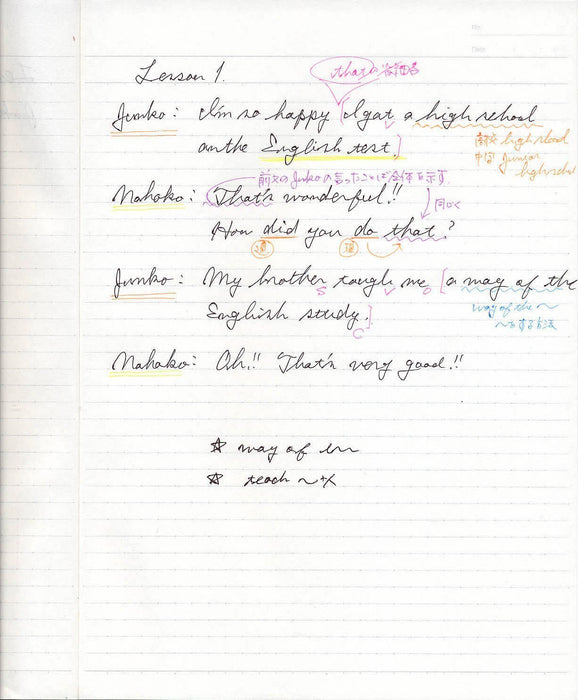 Lesson 1.
thatの省略
Junko: I'm so happy [I got a high school
on the English test.]
高校 high school
中学 junior
high school
前文のJunkoの言ったことば全体を示す
Nahoko: That's wonderful!!
同じく
How did you do that?
過
Junko: My brother taugh me [a way of the
S V O
English study.]
C
way of the ～
～する方法
Nahoko: Oh!! That's very good!!
☆ way of
☆ teach ～